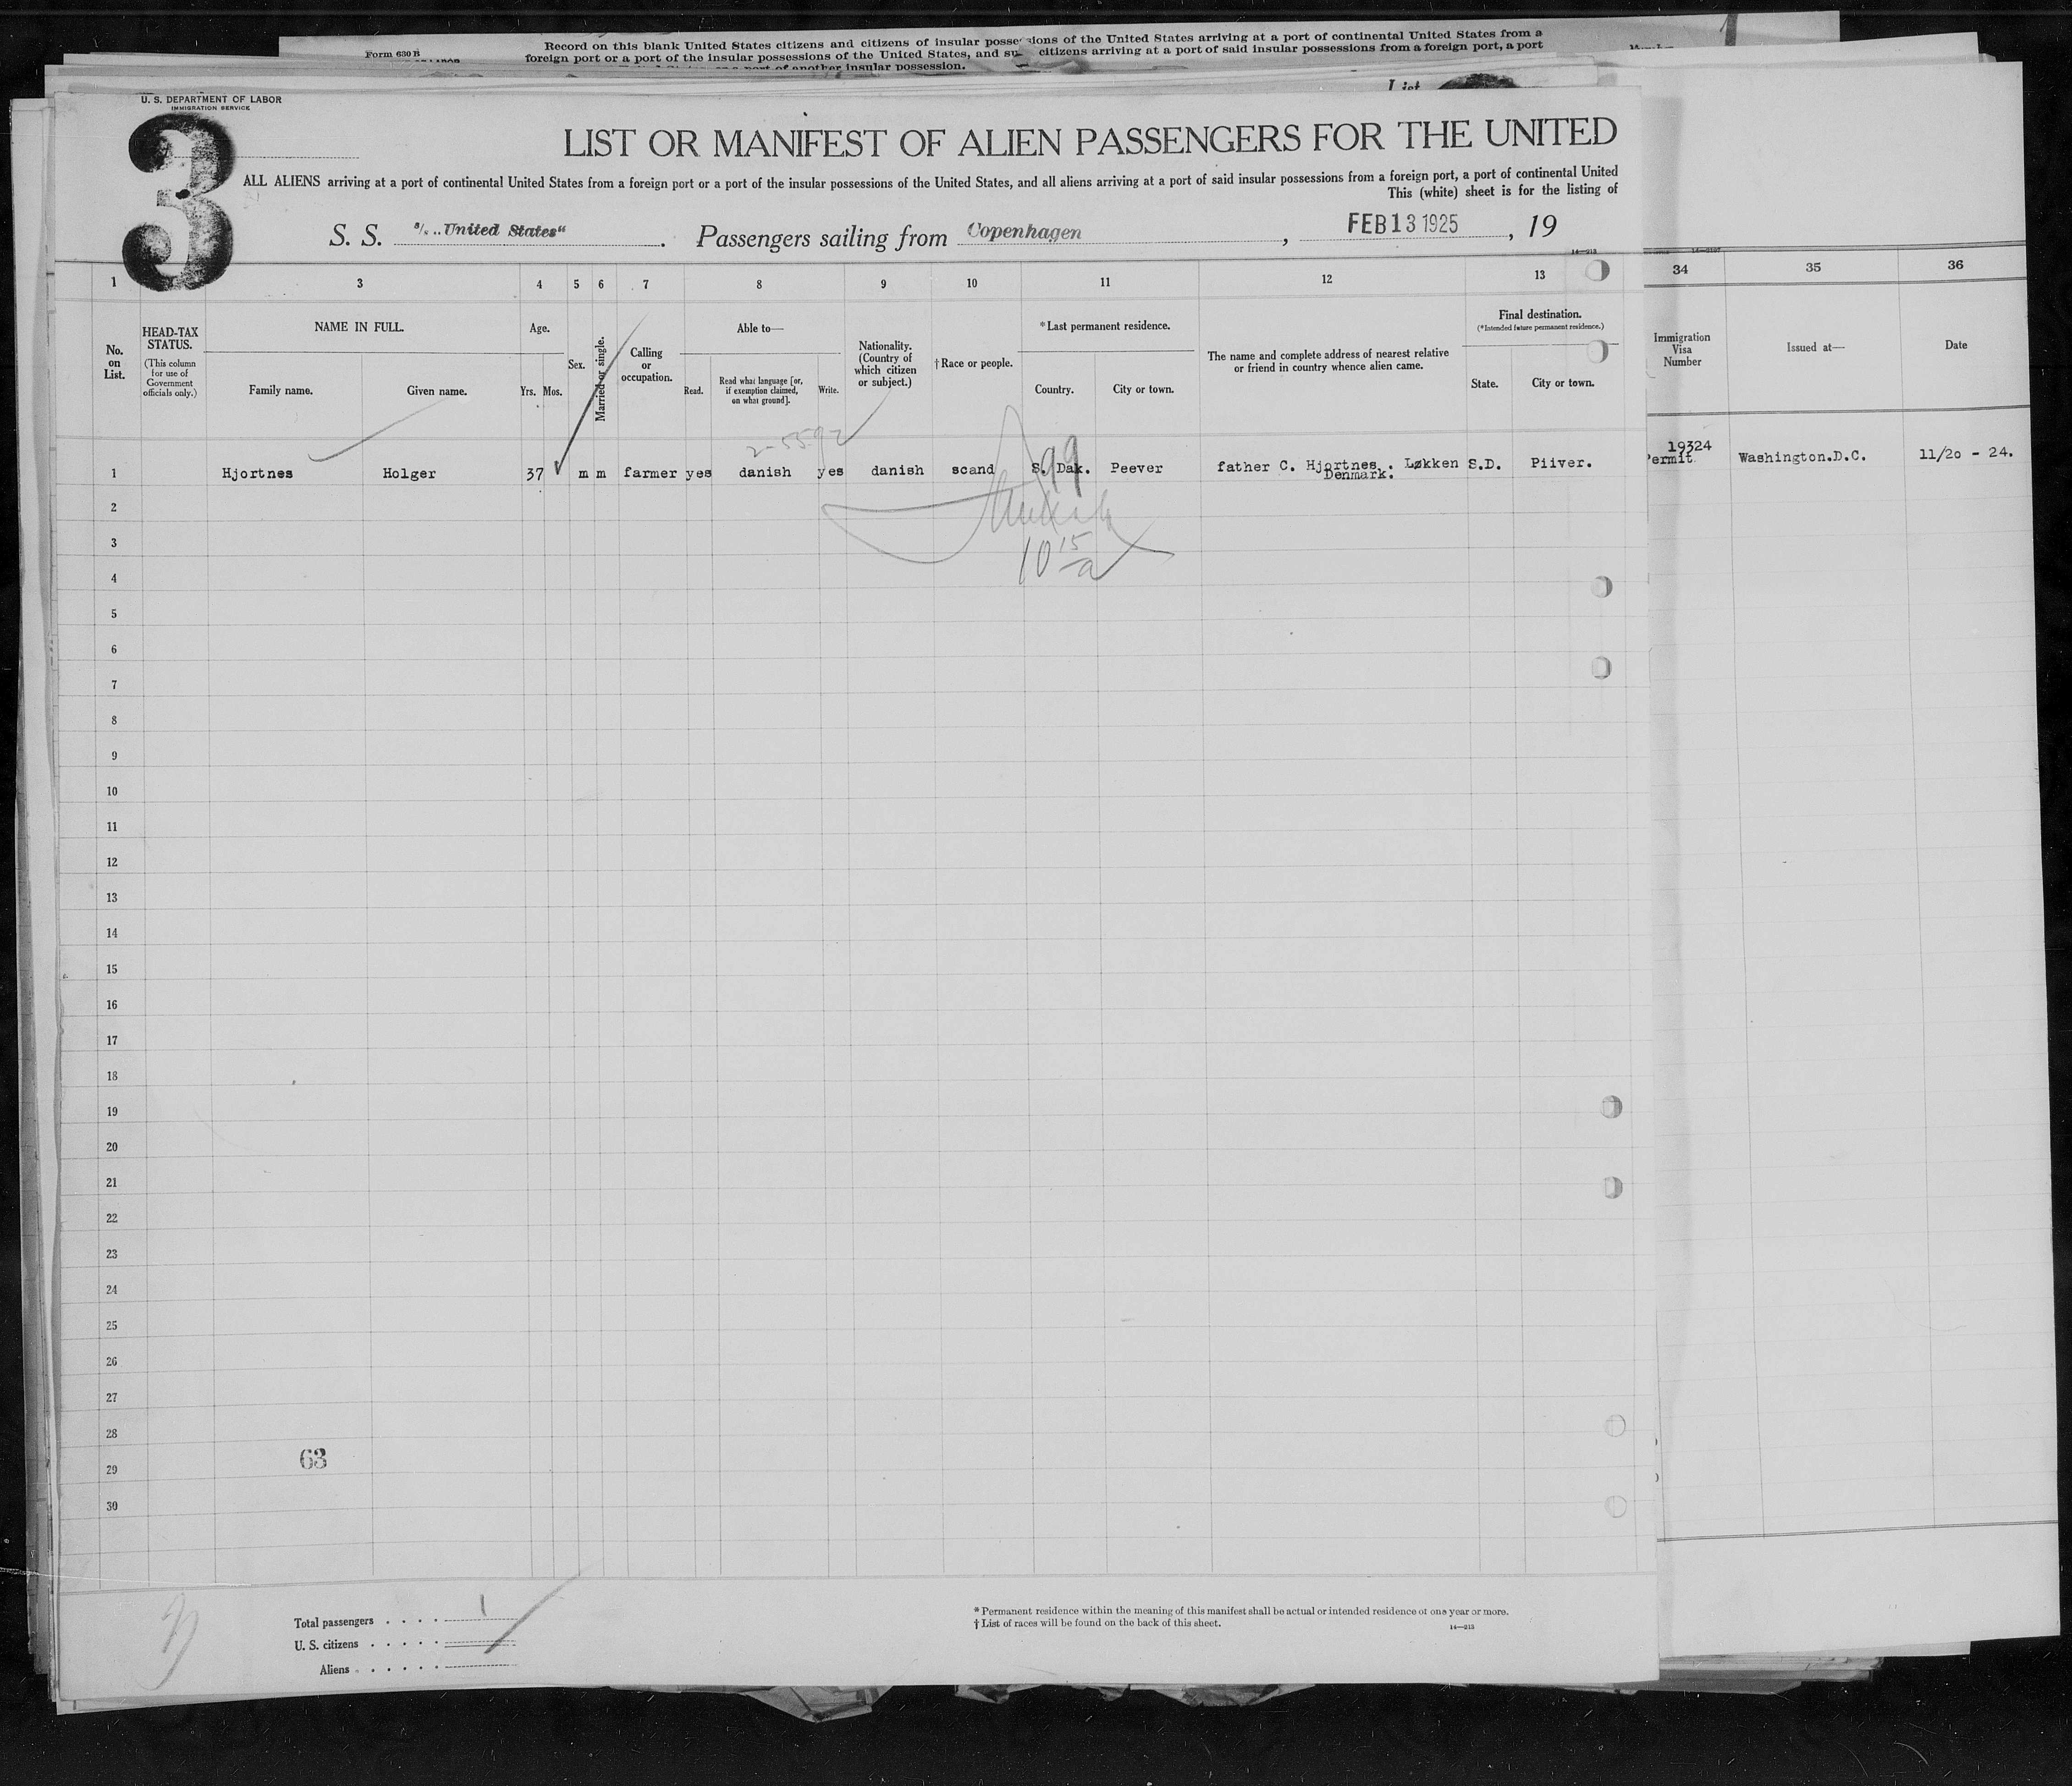 Form 630 B
Record on this blank United States citizens and citizens of insular possessions of the United States arriving at a port of continental United States from a
foreign port or a port of the insular possessions of the United States, and citizens arriving at a port of said insular possessions from a foreign port, a port
port of another insular possession.
List
U. S. DEPARTMENT OF LABOR
IMMIGRATION SERVICE
3
LIST OR MANIFEST OF ALIEN PASSENGERS FOR THE UNITED
ALL ALIENS arriving at a port of continental United States from a foreign port or a port of the insular possessions of the United States, and all aliens arriving at a port of said insular possessions from a foreign port, a port of continental United
This (white) sheet is for the listing of
S. S. s/s „United States“ . Passengers sailing from Copenhagen , FEB 13 1925 , 19
14—213
1 3 4 5 6 7 8 9 10 11 12 13 34 35 36
No. on List.
HEAD-TAX STATUS.
(This column for use of Government officials only.)
NAME IN FULL.
Family name. Given name.
Age.
Yrs. Mos.
Sex.
Married or single.
Calling or occupation.
Able to—
Read. Read what language [or, if exemption claimed, on what ground]. Write.
Nationality. (Country of which citizen or subject.)
†Race or people.
*Last permanent residence.
Country. City or town.
The name and complete address of nearest relative or friend in country whence alien came.
Final destination.
(*Intended future permanent residence.)
State. City or town.
Immigration Visa Number
Issued at—
Date
2-5592
99
19324
1 Hjortnes Holger 37 m m farmer yes danish yes danish scand S. Dak. Peever father C. Hjortnes . Løkken S.D. Piiver. ermit Washington.D.C. 11/20 - 24.
Denmark.
2
3
10 15 a
4
5
6
7
8
9
10
11
12
13
14
15
16
17
18
19
20
21
22
23
24
25
26
27
28
63
29
30
Total passengers . . . . 1
U. S. citizens . . . . .
Aliens . . . . . .
* Permanent residence within the meaning of this manifest shall be actual or intended residence of one year or more.
† List of races will be found on the back of this sheet.
14—213